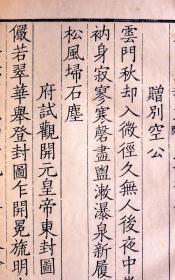 贈別空公
雲門秋却入微徑久無人後夜中
衲身寂寥寒磬盡盥漱瀑泉新履
松風掃石塵
府試觀開元皇帝東封圖
儼若翠華舉登封圖乍開冕旒明